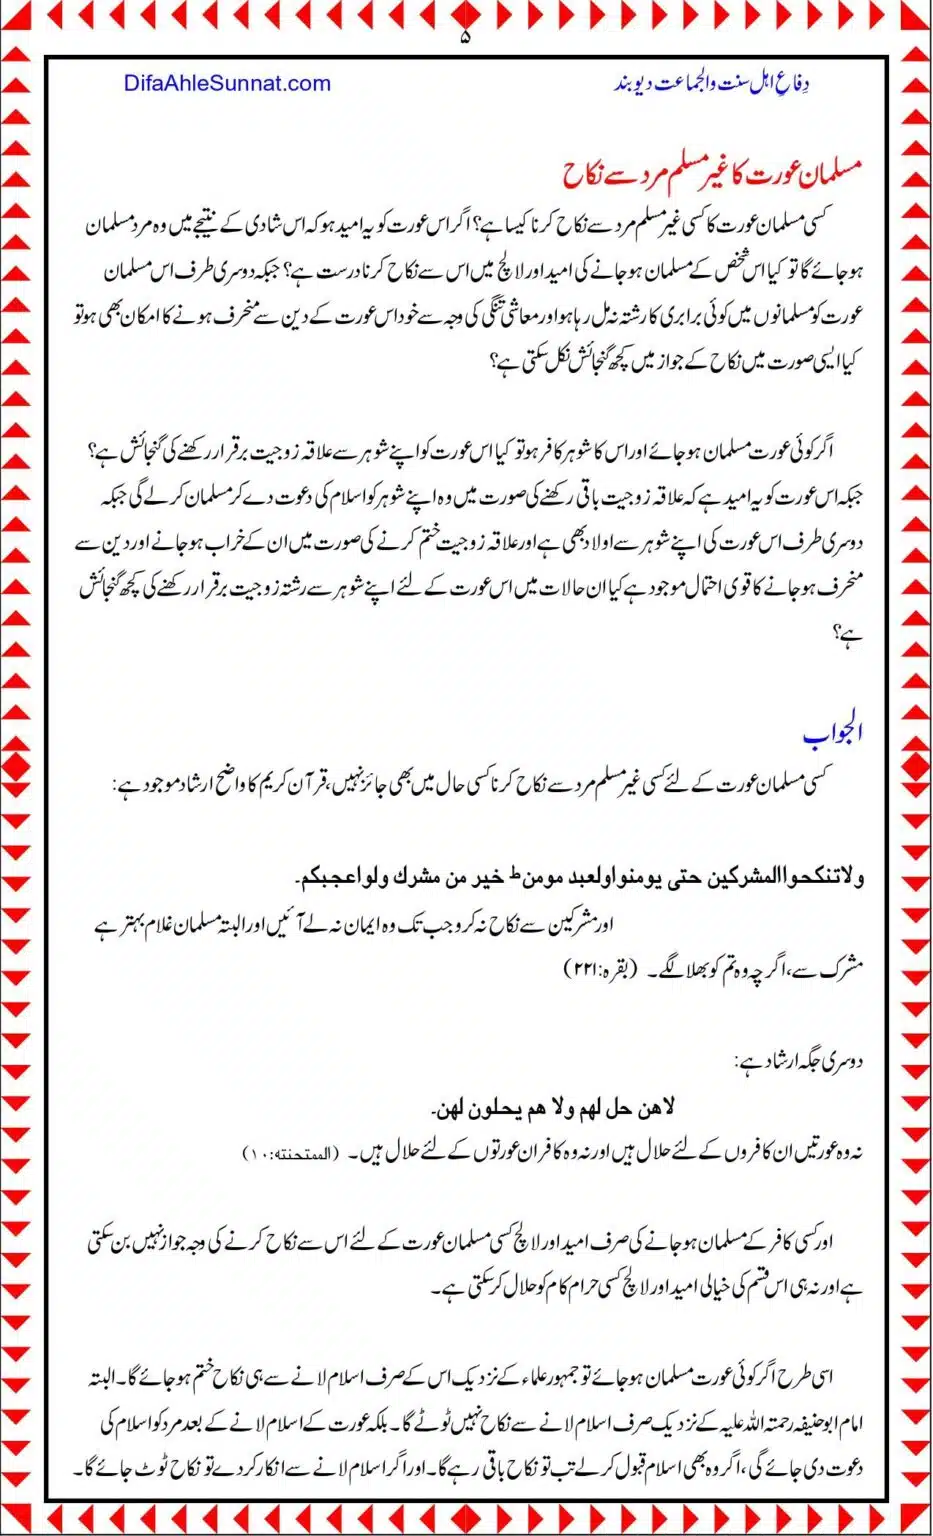 ۵
دِفاعِ اہل سنت والجماعت دیوبند DifaAhleSunnat.com
مسلمان عورت کا غیر مسلم مرد سے نکاح
کسی مسلمان عورت کا کسی غیر مسلم مرد سے نکاح کرنا کیسا ہے؟ اگر اس عورت کو یہ امید ہو کہ اس شادی کے نتیجے میں وہ مرد مسلمان
ہو جائے گا تو کیا اس شخص کے مسلمان ہو جانے کی امید اور لالچ میں اس سے نکاح کرنا درست ہے؟ جبکہ دوسری طرف اس مسلمان
عورت کو مسلمانوں میں کوئی برابری کا رشتہ نہ مل رہا ہو اور معاشی تنگی کی وجہ سے خود اس عورت کے دین سے منحرف ہونے کا امکان بھی ہو تو
کیا ایسی صورت میں نکاح کے جواز میں کچھ گنجائش نکل سکتی ہے؟
اگر کوئی عورت مسلمان ہو جائے اور اس کا شوہر کافر ہو تو کیا اس عورت کو اپنے شوہر سے علاقہ زوجیت برقرار رکھنے کی گنجائش ہے؟
جبکہ اس عورت کو یہ امید ہے کہ علاقہ زوجیت باقی رکھنے کی صورت میں وہ اپنے شوہر کو اسلام کی دعوت دے کر مسلمان کر لے گی جبکہ
دوسری طرف اس عورت کی اپنے شوہر سے اولاد بھی ہے اور علاقہ زوجیت ختم کرنے کی صورت میں ان کے خراب ہو جانے اور دین سے
منحرف ہو جانے کا قوی احتمال موجود ہے کیا ان حالات میں اس عورت کے لئے اپنے شوہر سے رشتہ زوجیت برقرار رکھنے کی کچھ گنجائش
ہے؟
الجواب
کسی مسلمان عورت کے لئے کسی غیر مسلم مرد سے نکاح کرنا کسی حال میں بھی جائز نہیں، قرآن کریم کا واضح ارشاد موجود ہے:
ولاتنكحواالمشركين حتى يومنواولعبد مومن ط خير من مشرك ولواعجبكم۔
اور مشرکین سے نکاح نہ کرو جب تک وہ ایمان نہ لے آئیں اور البتہ مسلمان غلام بہتر ہے
مشرک سے، اگرچہ وہ تم کو بھلا لگے۔ (بقرہ:۲۲۱)
دوسری جگہ ارشاد ہے:
لاهن حل لهم ولا هم يحلون لهن۔
نہ وہ عورتیں ان کافروں کے لئے حلال ہیں اور نہ وہ کافر ان عورتوں کے لئے حلال ہیں۔ (الممتحنته:۱۰)
اور کسی کافر کے مسلمان ہو جانے کی صرف امید اور لالچ کسی مسلمان عورت کے لئے اس سے نکاح کرنے کی وجہ جواز نہیں بن سکتی
ہے اور نہ ہی اس قسم کی خیالی امید اور لالچ کسی حرام کام کو حلال کر سکتی ہے۔
اسی طرح اگر کوئی عورت مسلمان ہو جائے تو جمہور علماء کے نزدیک اس کے صرف اسلام لانے سے ہی نکاح ختم ہو جائے گا۔ البتہ
امام ابو حنیفہ رحمتہ اللہ علیہ کے نزدیک صرف اسلام لانے سے نکاح نہیں ٹوٹے گا۔ بلکہ عورت کے اسلام لانے کے بعد مرد کو اسلام کی
دعوت دی جائے گی، اگر وہ بھی اسلام قبول کر لے تب تو نکاح باقی رہے گا۔ اور اگر اسلام لانے سے انکار کر دے تو نکاح ٹوٹ جائے گا۔